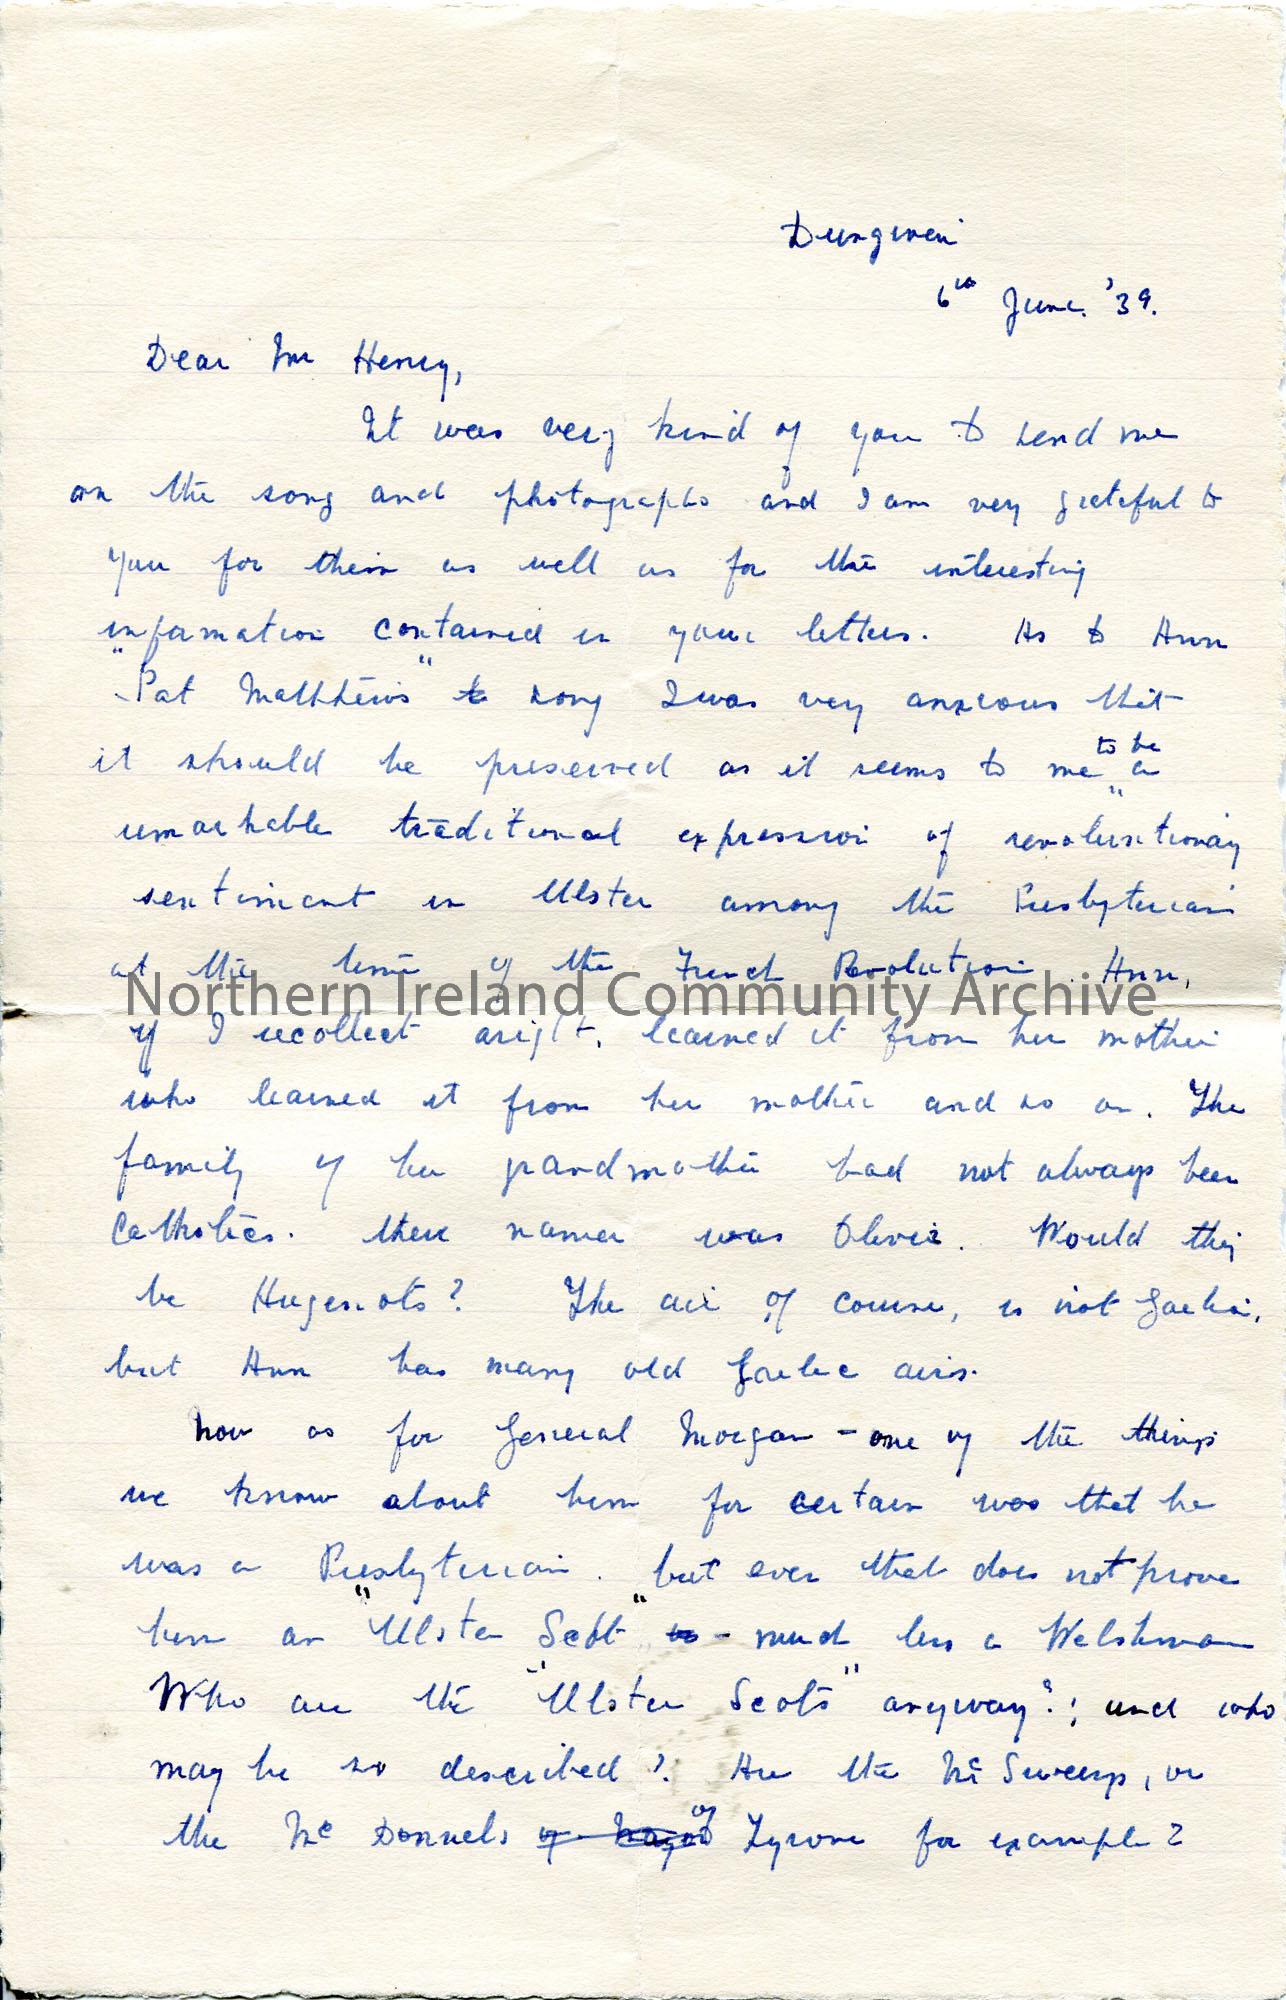 Dungiven
6th June. '39.
Dear Mr Henry,
It was very kind of you to send me
on the song and photographs and I am very grateful to
you for them as well as for the interesting
information contained in your letters. As to Ann
"Pat Matthews" song I was very anxious that
it should be preserved as it seems to me to be a
remarkable traditional expression of revolutionary
sentiment in Ulster among the Presbyterians
at the time of the French Revolution. Ann,
Northern Ireland Community Archive
if I recollect aright, learned it from her mother
who learned it from her mother and so on. The
family of her grandmother had not always been
Catholics. Their name was Oliver. Would they
be Hugenots? The air of course, is not Gaelic,
but Ann has many old Gaelic airs.
Now as for General Morgan - one of the things
we know about him for certain was that he
was a Presbyterian. but even that does not prove
him an "Ulster Scot" - much less a Welshman
Who are the "Ulster Scots" anyway?; and who
may be so described? Are the McSweenys, or
the McDonnels of Tyrone for example?